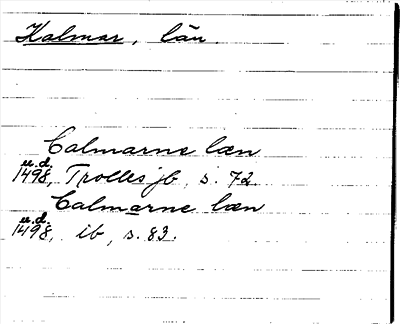 Kalmar, län.
Calmarne læn
u.d.
1498, Trolles jb, s. 72.
Calmarne læn
u.d.
1498, ib, s. 83.